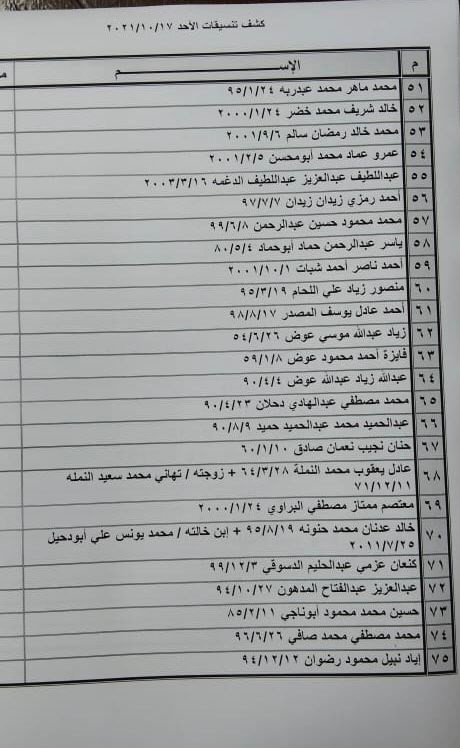 كشف تنسيقات الأحد ٢٠٢١/١٠/١٧
م الإســـــم
٥١ محمد ماهر محمد عبدربه ٩٥/١/٢٤
٥٢ خالد شريف محمد خضر ٢٠٠٠/١/٢٤
٥٣ محمد خالد رمضان سالم ٢٠٠١/٩/٦
٥٤ عمرو عماد محمد أبومحسن ٢٠٠١/٢/٥
٥٥ عبداللطيف عبدالعزيز عبداللطيف الدغمه ٢٠٠٣/٣/١٦
٥٦ أحمد رمزي زيدان زيدان ٩٧/٧/٧
٥٧ محمد محمود حسين عبدالرحمن ٩٩/٦/٨
٥٨ ياسر عبدالرحمن حماد أبوحماد ٨٠/٥/٤
٥٩ أحمد ناصر أحمد شبات ٢٠٠١/١٠/١
٦٠ منصور زياد علي اللحام ٩٥/٣/١٩
٦١ أحمد عادل يوسف المصدر ٩٨/٨/١٧
٦٢ زياد عبدالله موسي عوض ٥٤/٦/٢٦
٦٣ فايزة أحمد محمود عوض ٥٩/١/٨
٦٤ عبدالله زياد عبدالله عوض ٩٠/٤/٤
٦٥ محمد مصطفي عبدالهادي دحلان ٩٠/٤/٢٣
٦٦ عبدالحميد محمد عبدالحميد حميد ٩٠/٨/٩
٦٧ حنان نجيب نعمان صادق ٦٠/١/١٠
٦٨ عادل يعقوب محمد النملة ٦٤/٣/٢٨ + زوجته / تهاني محمد سعيد النمله
٧١/١٢/١١
٦٩ معتصم ممتاز مصطفي البراوي ٢٠٠٠/١/٢٤
٧٠ خالد عدنان محمد حنونه ٩٥/٨/١٩ + إبن خالته / محمد يونس علي أبودحيل
٢٠١١/٧/٢٥
٧١ كنعان عزمي عبدالحليم الدسوقي ٩٩/١٢/٣
٧٢ عبدالعزيز عبدالفتاح المدهون ٩٤/١٠/٢٧
٧٣ حسين محمد محمود أبوناجي ٨٥/٢/١١
٧٤ محمد مصطفي محمد صافي ٩٦/٦/٢٦
٧٥ إياد نبيل محمود رضوان ٩٤/١٢/١٢